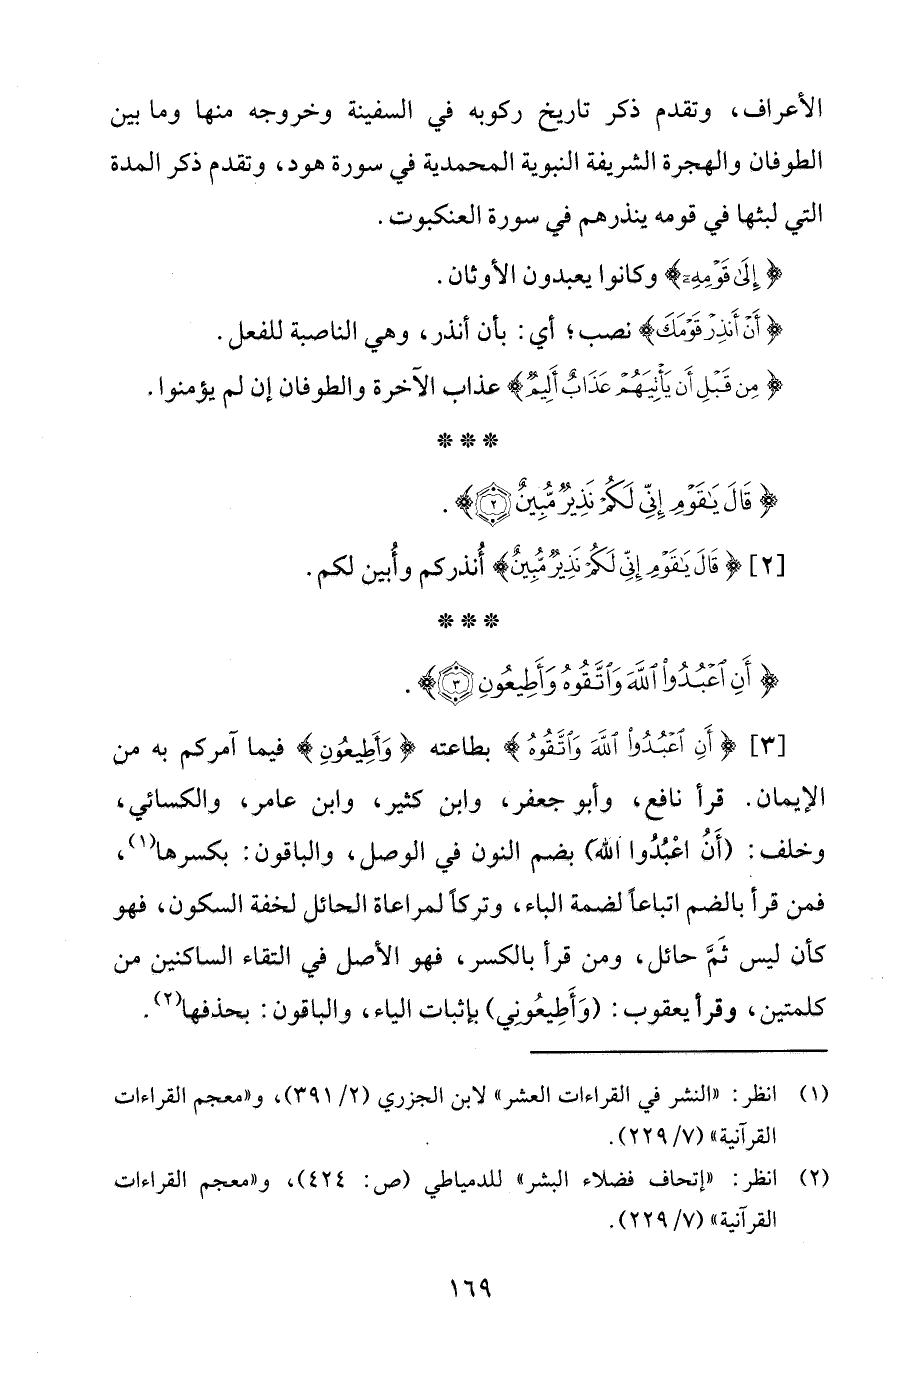 الأعراف، وتقدم ذكر تاريخ ركوبه في السفينة وخروجه منها وما بين
الطوفان والهجرة الشريفة النبوية المحمدية في سورة هود، وتقدم ذكر المدة
التي لبثها في قومه ينذرهم في سورة العنكبوت.
﴿إِلَىٰ قَوْمِهِۦٓ﴾ وكانوا يعبدون الأوثان.
﴿أَنْ أَنذِرْ قَوْمَكَ﴾ نصب؛ أي: بأن أنذر، وهي الناصبة للفعل.
﴿مِن قَبْلِ أَن يَأْتِيَهُمْ عَذَابٌ أَلِيمٌ﴾ عذاب الآخرة والطوفان إن لم يؤمنوا.
* * *
﴿قَالَ يَٰقَوْمِ إِنِّى لَكُمْ نَذِيرٌ مُّبِينٌ ٢﴾.
[٢] ﴿قَالَ يَٰقَوْمِ إِنِّى لَكُمْ نَذِيرٌ مُّبِينٌ﴾ أُنذركم وأُبين لكم.
* * *
﴿أَنِ ٱعْبُدُوا۟ ٱللَّهَ وَٱتَّقُوهُ وَأَطِيعُونِ ٣﴾.
[٣] ﴿أَنِ ٱعْبُدُوا۟ ٱللَّهَ وَٱتَّقُوهُ﴾ بطاعته ﴿وَأَطِيعُونِ﴾ فيما آمركم به من
الإيمان. قرأ نافع، وأبو جعفر، وابن كثير، وابن عامر، والكسائي،
وخلف: (أَنُ اعْبُدُوا اللهَ) بضم النون في الوصل، والباقون: بكسرها(١)،
فمن قرأ بالضم اتباعاً لضمة الباء، وتركاً لمراعاة الحائل لخفة السكون، فهو
كأن ليس ثَمَّ حائل، ومن قرأ بالكسر، فهو الأصل في التقاء الساكنين من
كلمتين، وقرأ يعقوب: (وَأَطِيعُونِي) بإثبات الياء، والباقون: بحذفها(٢).
(١) انظر: «النشر في القراءات العشر» لابن الجزري (٢/ ٣٩١)، و«معجم القراءات
القرآنية» (٧/ ٢٢٩).
(٢) انظر: «إتحاف فضلاء البشر» للدمياطي (ص: ٤٢٤)، و«معجم القراءات
القرآنية» (٧/ ٢٢٩).
١٦٩